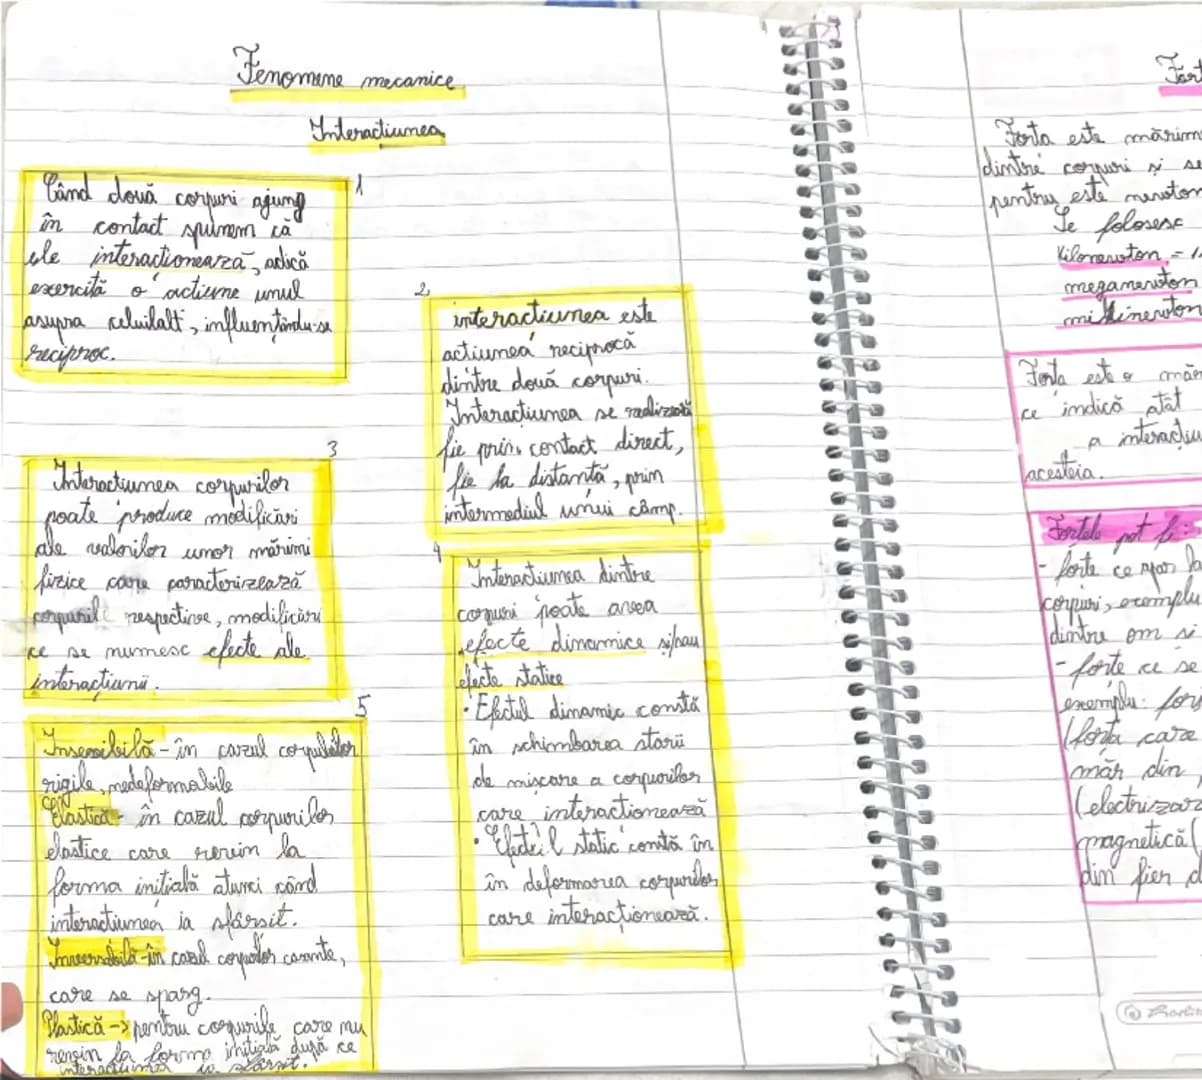 Fenomene mecanice
Interacțiunea
1
Când două corpuri ajung
în contact spunem că
ele interacționează, adică
exercită o acțiune unul
asupra celuilalt, influențându-se
reciproc.
2
interacțiunea este
acțiunea reciprocă
dintre două corpuri.
Interacțiunea se realizează
fie prin contact direct,
fie la distantă, prin
intermediul unui câmp.
3
Interacțiunea corpurilor
poate produce modificări
ale valorilor unor mărimi
fizice care caracterizează
corpurile respective, modificări
ce se numesc efecte ale
interacțiunii.
4
Interacțiunea dintre
corpuri poate avea
efecte dinamice și/sau
efecte statice
• Efectul dinamic constă
în schimbarea starii
de mișcare a corpurilor
care interacționează
• Efectul static constă în
în deformarea corpurilor
care interacționează.
5
Insesibilă - în cazul corpurilor
rigile, nedeformabile
Elastică - în cazul corpurilor
elastice care revin la
forma inițială atunci când
interacțiunea ia sfârsit.
în cazul corpurilor casante,
care se sparg.
Plastică -> pentru corpurile care nu
revin la forma inițială după ce
interacțiunea ia sfârsit.
Forț
Forta este mărim
dintre corpuri și se
pentru este newton
Se folosesc
Kilonewton = 1
meganewton
milinewton
Forta este o măr
ce indică atât
a interacțiu
acesteia.
Fortele pot fi:
- forte ce apar la
corpuri, exemplu
dintre om și
- forte ce se
exemplu: for
(forța care
măr din
(electrizar
magnetică(
din fier d